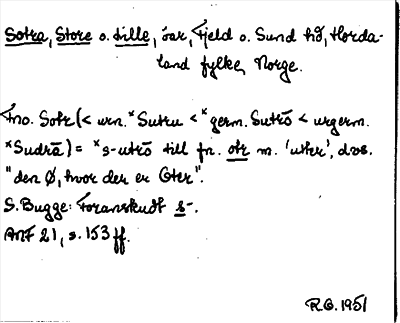 Sotra, Store o. Lille, öar, Fjeld o. Sund hd, Horda-
land fylke, Norge.
Fno. Sotr (< urn. *Sutru < *germ. Sutrō < urgerm.
*Sudrā) = *s-utrō till fn. otr m. 'utter', dvs.
"den Ø, hvor der er Oter".
S. Bugge: Foranskudt s-.
ANF 21, s. 153 ff.
R.G. 1951